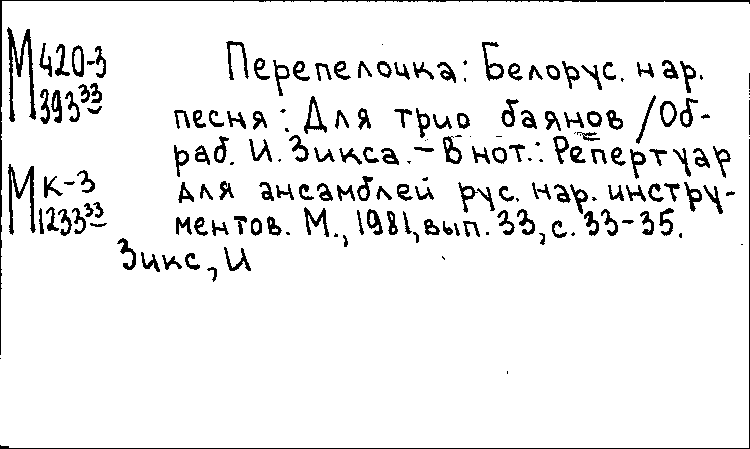 М 420-3
393 33
Перепелочка: Белорус. нар.
песня: Для трио баянов / Об-
раб. И. Зикса. – В нот.: Репертуар
М К-3
1233 33
для ансамблей рус. нар. инстру-
ментов. М., 1981, вып. 33, с. 33-35.
Зикс, И